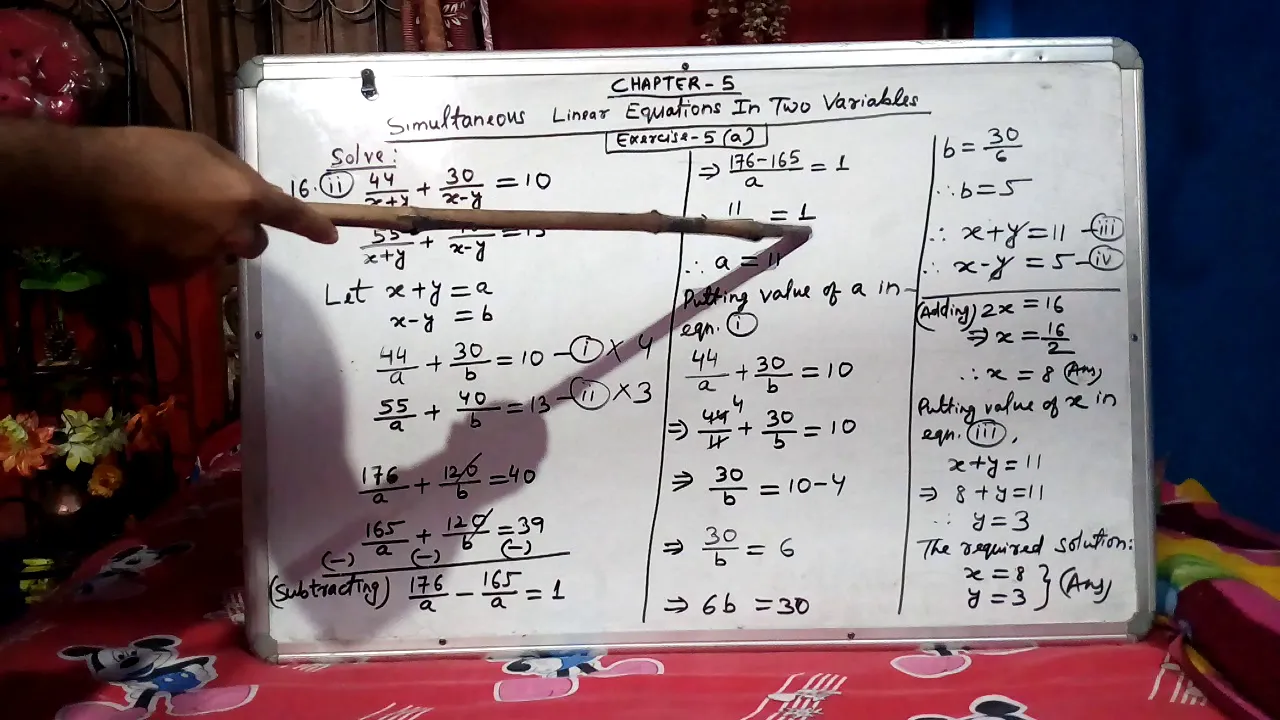 CHAPTER-5
Simultaneous Linear Equations In Two Variables
Exercise-5(a)
Solve:
16. (ii) 44/(x+y) + 30/(x-y) = 10
55/(x+y) + /(x-y) = 13
Let x+y = a
x-y = b
44/a + 30/b = 10 — (i) × 4
55/a + 40/b = 13 — (ii) × 3
176/a + 120/b = 40
165/a + 120/b = 39
(-) (-) (-)
(Subtracting) 176/a - 165/a = 1
⇒ (176-165)/a = 1
11 = 1
∴ a = 11
Putting value of a in
eqn. (i)
44/a + 30/b = 10
⇒ 44/11 4 + 30/b = 10
⇒ 30/b = 10-4
⇒ 30/b = 6
⇒ 6b = 30
b = 30/6
∴ b = 5
∴ x+y = 11 — (iii)
∴ x-y = 5 — (iv)
(Adding) 2x = 16
⇒ x = 16/2
∴ x = 8 (Ans)
Putting value of x in
eqn. (iii),
x+y = 11
⇒ 8+y = 11
∴ y = 3
The required solution:
x = 8
y = 3 } (Ans)